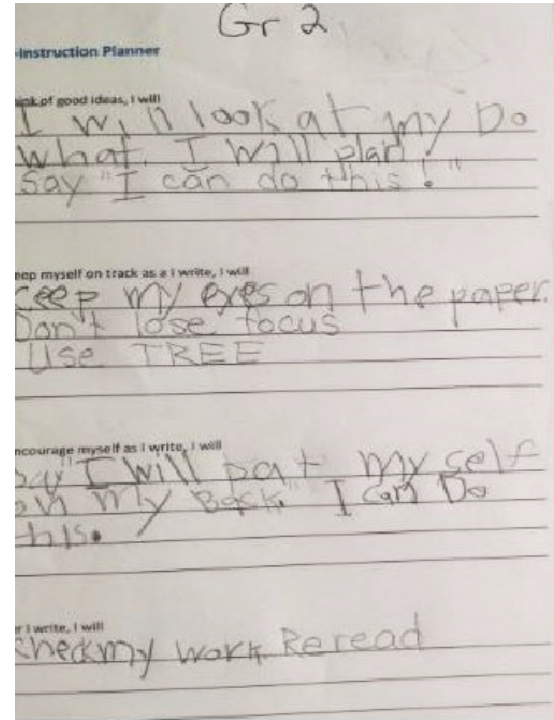 Gr 2
-Instruction Planner
ink of good ideas, I will
I will look at my Do
what. I will plan
Say "I can do this!"
eep myself on track as a I write, I will
keep my eyes on the paper.
Don't lose focus
Use TREE
ncourage myself as I write, I will
ay "I will pat my self
on my Back" I can Do
this.
r I write, I will
check my work. Reread